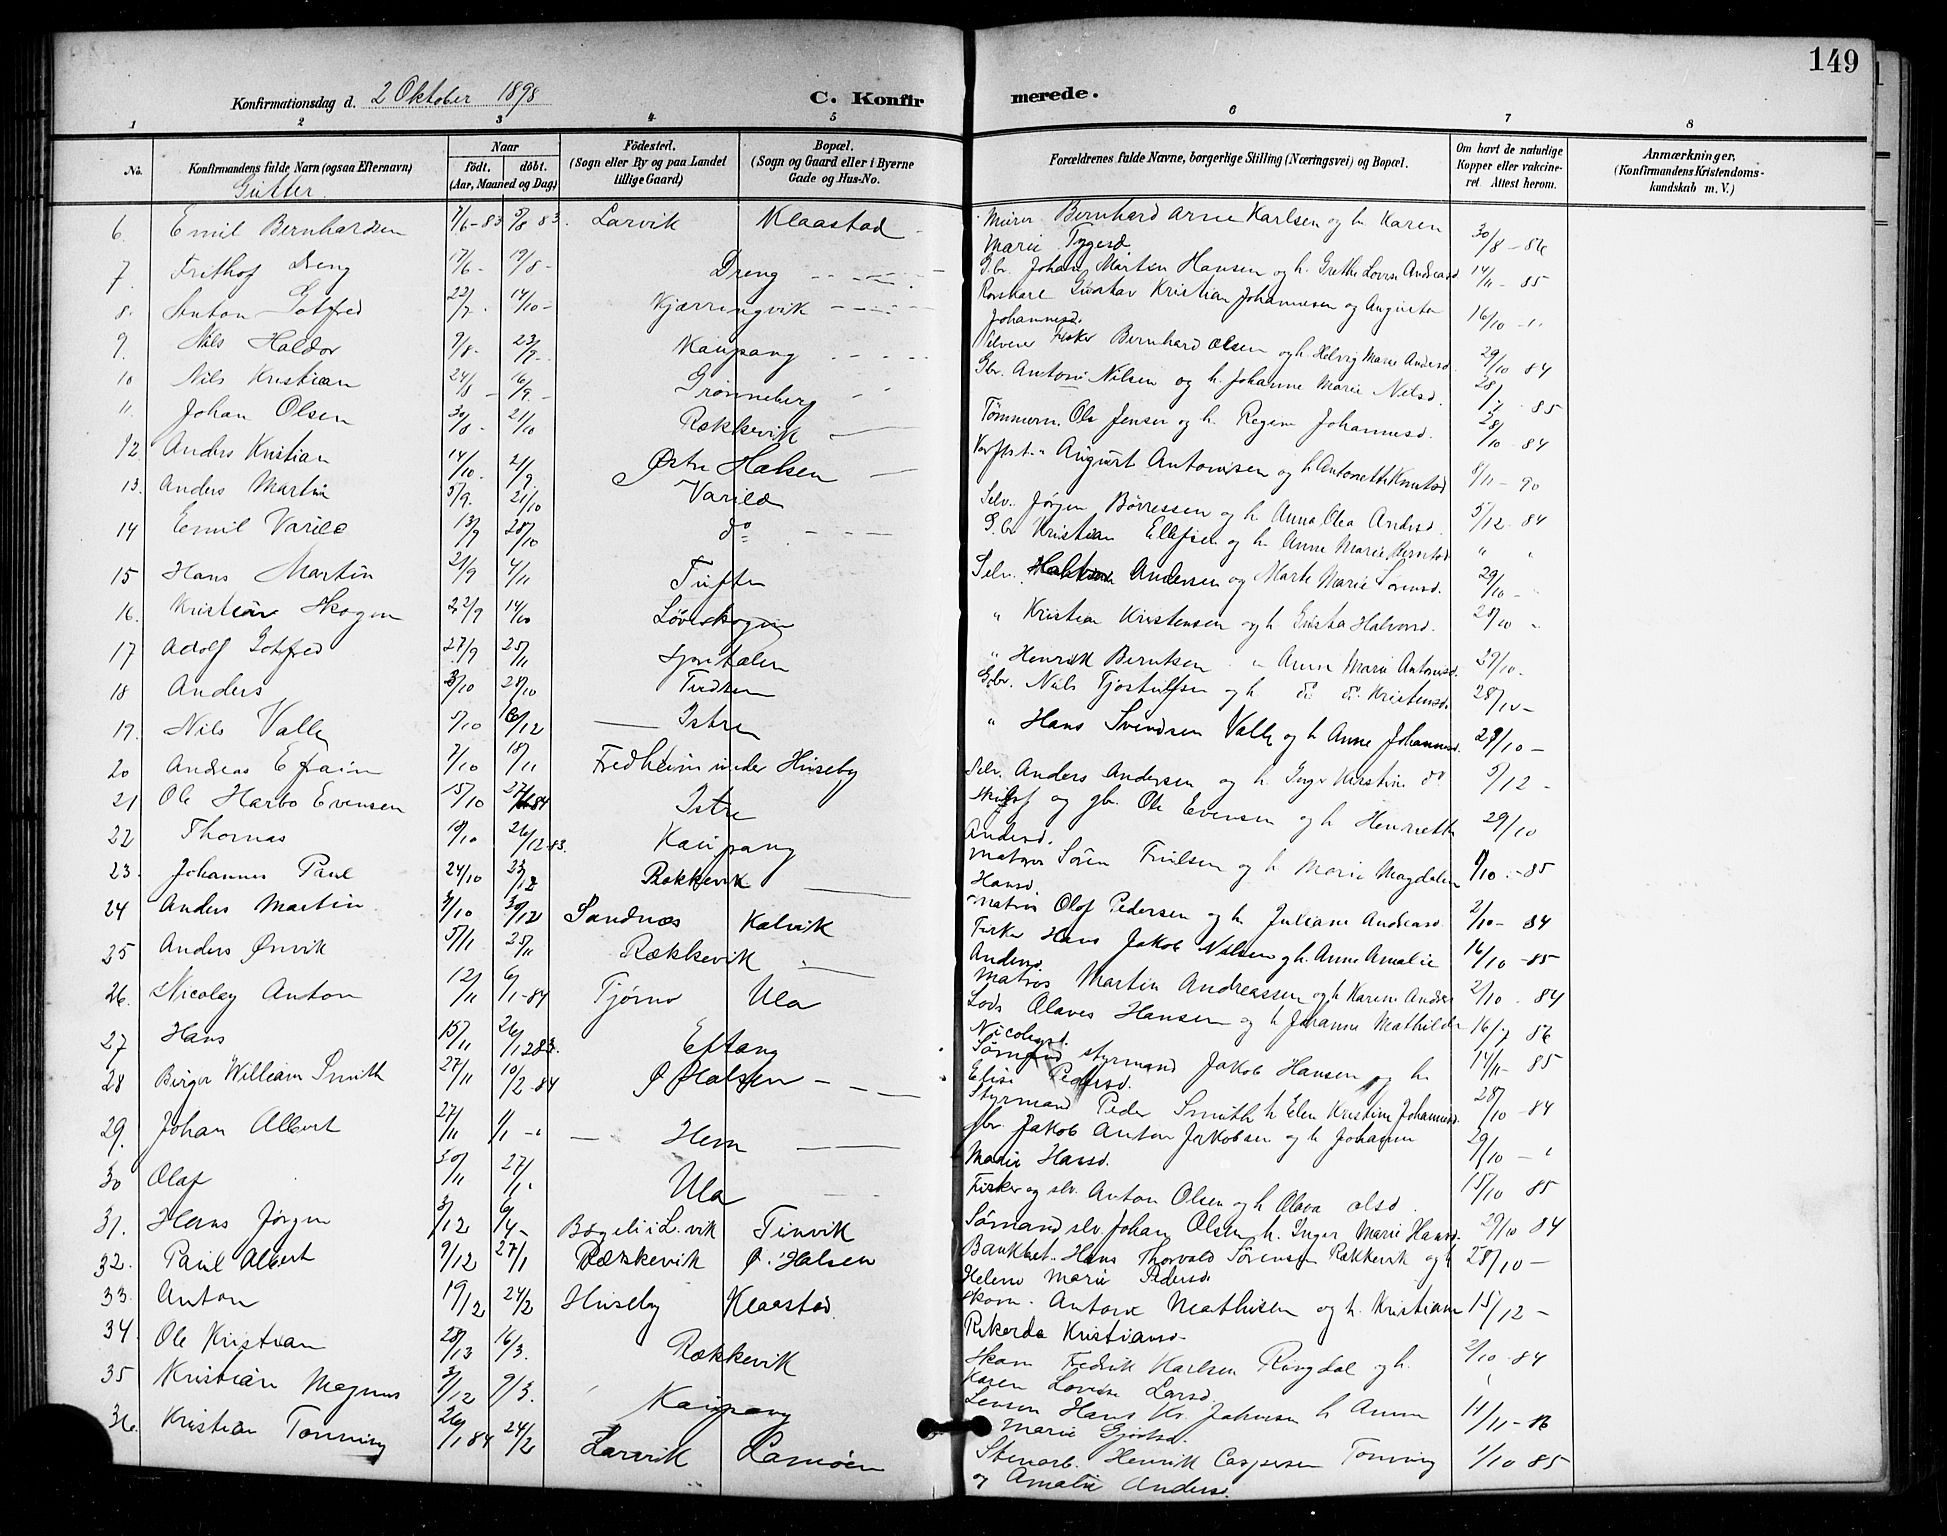 149
Konfirmationsdag d. 2 Oktober 1898
C. Konfirmerede.
1 2 3 4 5 6 7 8
No.
Konfirmandens fulde Navn (ogsaa Efternavn)
Gutter
Naar
født. døbt.
(Aar, Maaned og Dag)
Fødested.
(Sogn eller By og paa Landet
tillige Gaard)
Bopæl.
(Sogn og Gaard eller i Byerne
Gade og Hus-No.
Forældrenes fulde Navne, borgerlige Stilling (Næringsvei) og Bopæl.
Om havt de naturlige
Kopper eller vakcine-
ret. Attest herom.
Anmærkninger,
(Konfirmandens Kristendoms-
kundskab m. V.)
6. Emil Bernhardsen 7/6-83 5/8 83. Larvik Klaastad Murer Bernhard Arne Karlsen og h. Karen Marie Tygesd 30/8-86
7. Frithof Dreng 17/6- 19/8- Dreng Gbr. Johan Martin Hansen og h. Grethe Lovise Andreasd 14/11-85
8. Anton Gotfred 22/7. 14/10- Kjærringvik Gustav Kristian Johannesen og Augusta Johannesd. 16/10 - "
9. Nils Haldor 9/8- 23/9. Kaupang Fisker Bernhard Olsen og h. Helvig Marie Andersd. 29/10 84
10 Nils Kristian 24/8- 16/9.- Grønneberg Gbr. Anton Nilsen og h. Johanne Marie Nilsd. 85
11. Johan Olsen 30/8- 21/10 Rækkevik Tømmerm. Ole Jensen og h. Regine Johannesd. 28/10-84
12. Anders Kristian 14/10. 21/9. Østre Halsen August Antonisen og h. Antonette Knutsd 8/11-90
13. Anders Martin 5/9. 21/10 Varild Selv. Jørgen Børressen og h. Anna Olea Andersd. 5/12-84
14 Emil Varild 13/9 28/10 do Gbr Kristian Ellefsen og h. Anne Marie Berntsd " "
15 Hans Martin 21/9 4/11 Tufte Selv. Andersen og Marte Marie Sørensd. 29/10 -
16. Kristian Skogen 22/9 14/10 Løveskogen " Kristian Kristensen og h. Halvorsd. 28/10
17 Adolf Gotfred 27/9. 25/11 " Henrik Berntsen " Anne Marie Antonsd. 29/10.
18 Anders 3/10 28/10 Gbr. Nils Tjostulfsen og h. do do Kristensd. 28/10-
19. Nils Valle 5/10 16/12 Istre " Hans Svendsen Valle og h Anne Johannesd. 29/10-
20 Andreas Efraim 7/10 18/11 Fredheim under Huseby Selv. Anders Andersen og h. Inger Kirstine do 5/12-
21 Ole Harbo Evensen 15/10 Istre og gbr. Ole Evensen og h Henriette Andersd. 29/10
22 Thomas 19/10 26/12 83. Kaupang Matros Søren og h Maren Magdalene Hansd. /10-85
23. Johannes Paul 24/10 23/12 Rækkevik Matros Olof Pedersen og h. Juliane Andreasd 2/10-84
24 Anders Martin 3/10 30/12 Sandnæs Kalvik Fisker Hans Jakob Nilsen og h. Anne Amalie Andersd. 16/10-85
25 Anders Ønvik 5/11 25/11 Rækkevik Matros Martin Andreassen og h Karen 2/10-84
26. Nicolay Anton 12/11 6/1-84 Tjørno Ula Lods Olaves Hansen og h Johanne Mathilde Nicolaisd. 16/7 86
27 Hans 15/11 26/12 83. Eftang Sømand styrmand Jakob Hansen og h. Elise Pedersd. 14/11-85
28 Birger William Smith 27/11 10/2-84 Ø Halsen Styrmand Peder Smith h Elen Kristine Johannesd. 28/10-84
29. Johan Albert 27/11 1/1-" Hem gbr. Jakob Anton Jakobsen og h Johanne Marie Hansd. 29/10-"
30 Olaf 30/11 27/1. Ula Fisker og slv. Anton Olsen og h Olava Olsd. 15/10 85
31. Hans Jørgen 3/12 6/4- Bøgeli i L.vik Tinvik Sømand slv. Johan Olsen h. Inger Marie Hansd. 29/10 84
32. Paul Albert 9/12 27/1 Rækkevik Ø. Halsen Hans Thorvald Sørensen Rækkevik og h Helene Marie Pedersd. 28/10-
33. Anton 19/12 24/2 Huseby Klaastad Skom. Anton Mathisen og h. Kristiane Rikarda Kristiansd. 15/12-
34. Ole Kristian 28/13 16/3. Rækkevik Skom Fredrik Karlsen Ringdal og h. Karen Lovise Larsd. 2/10-84
35 Kristian Magnus 3/12 9/3. Kaupang Hans Kr. Johnsen h Anne Marie 11/11-86
36. Kristian Tonning 26/1 84 24/2 Larvik Lamøen Stenarb. Henrik Caspersen Tonning og Amalie Andersd. 1/10 85